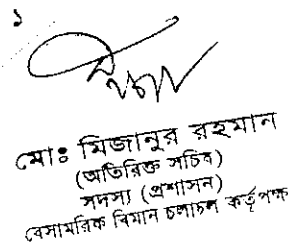 ১
মোঃ মিজানুর রহমান
(অতিরিক্ত সচিব)
সদস্য (প্রশাসন)
বেসামরিক বিমান চলাচল কর্তৃপক্ষ